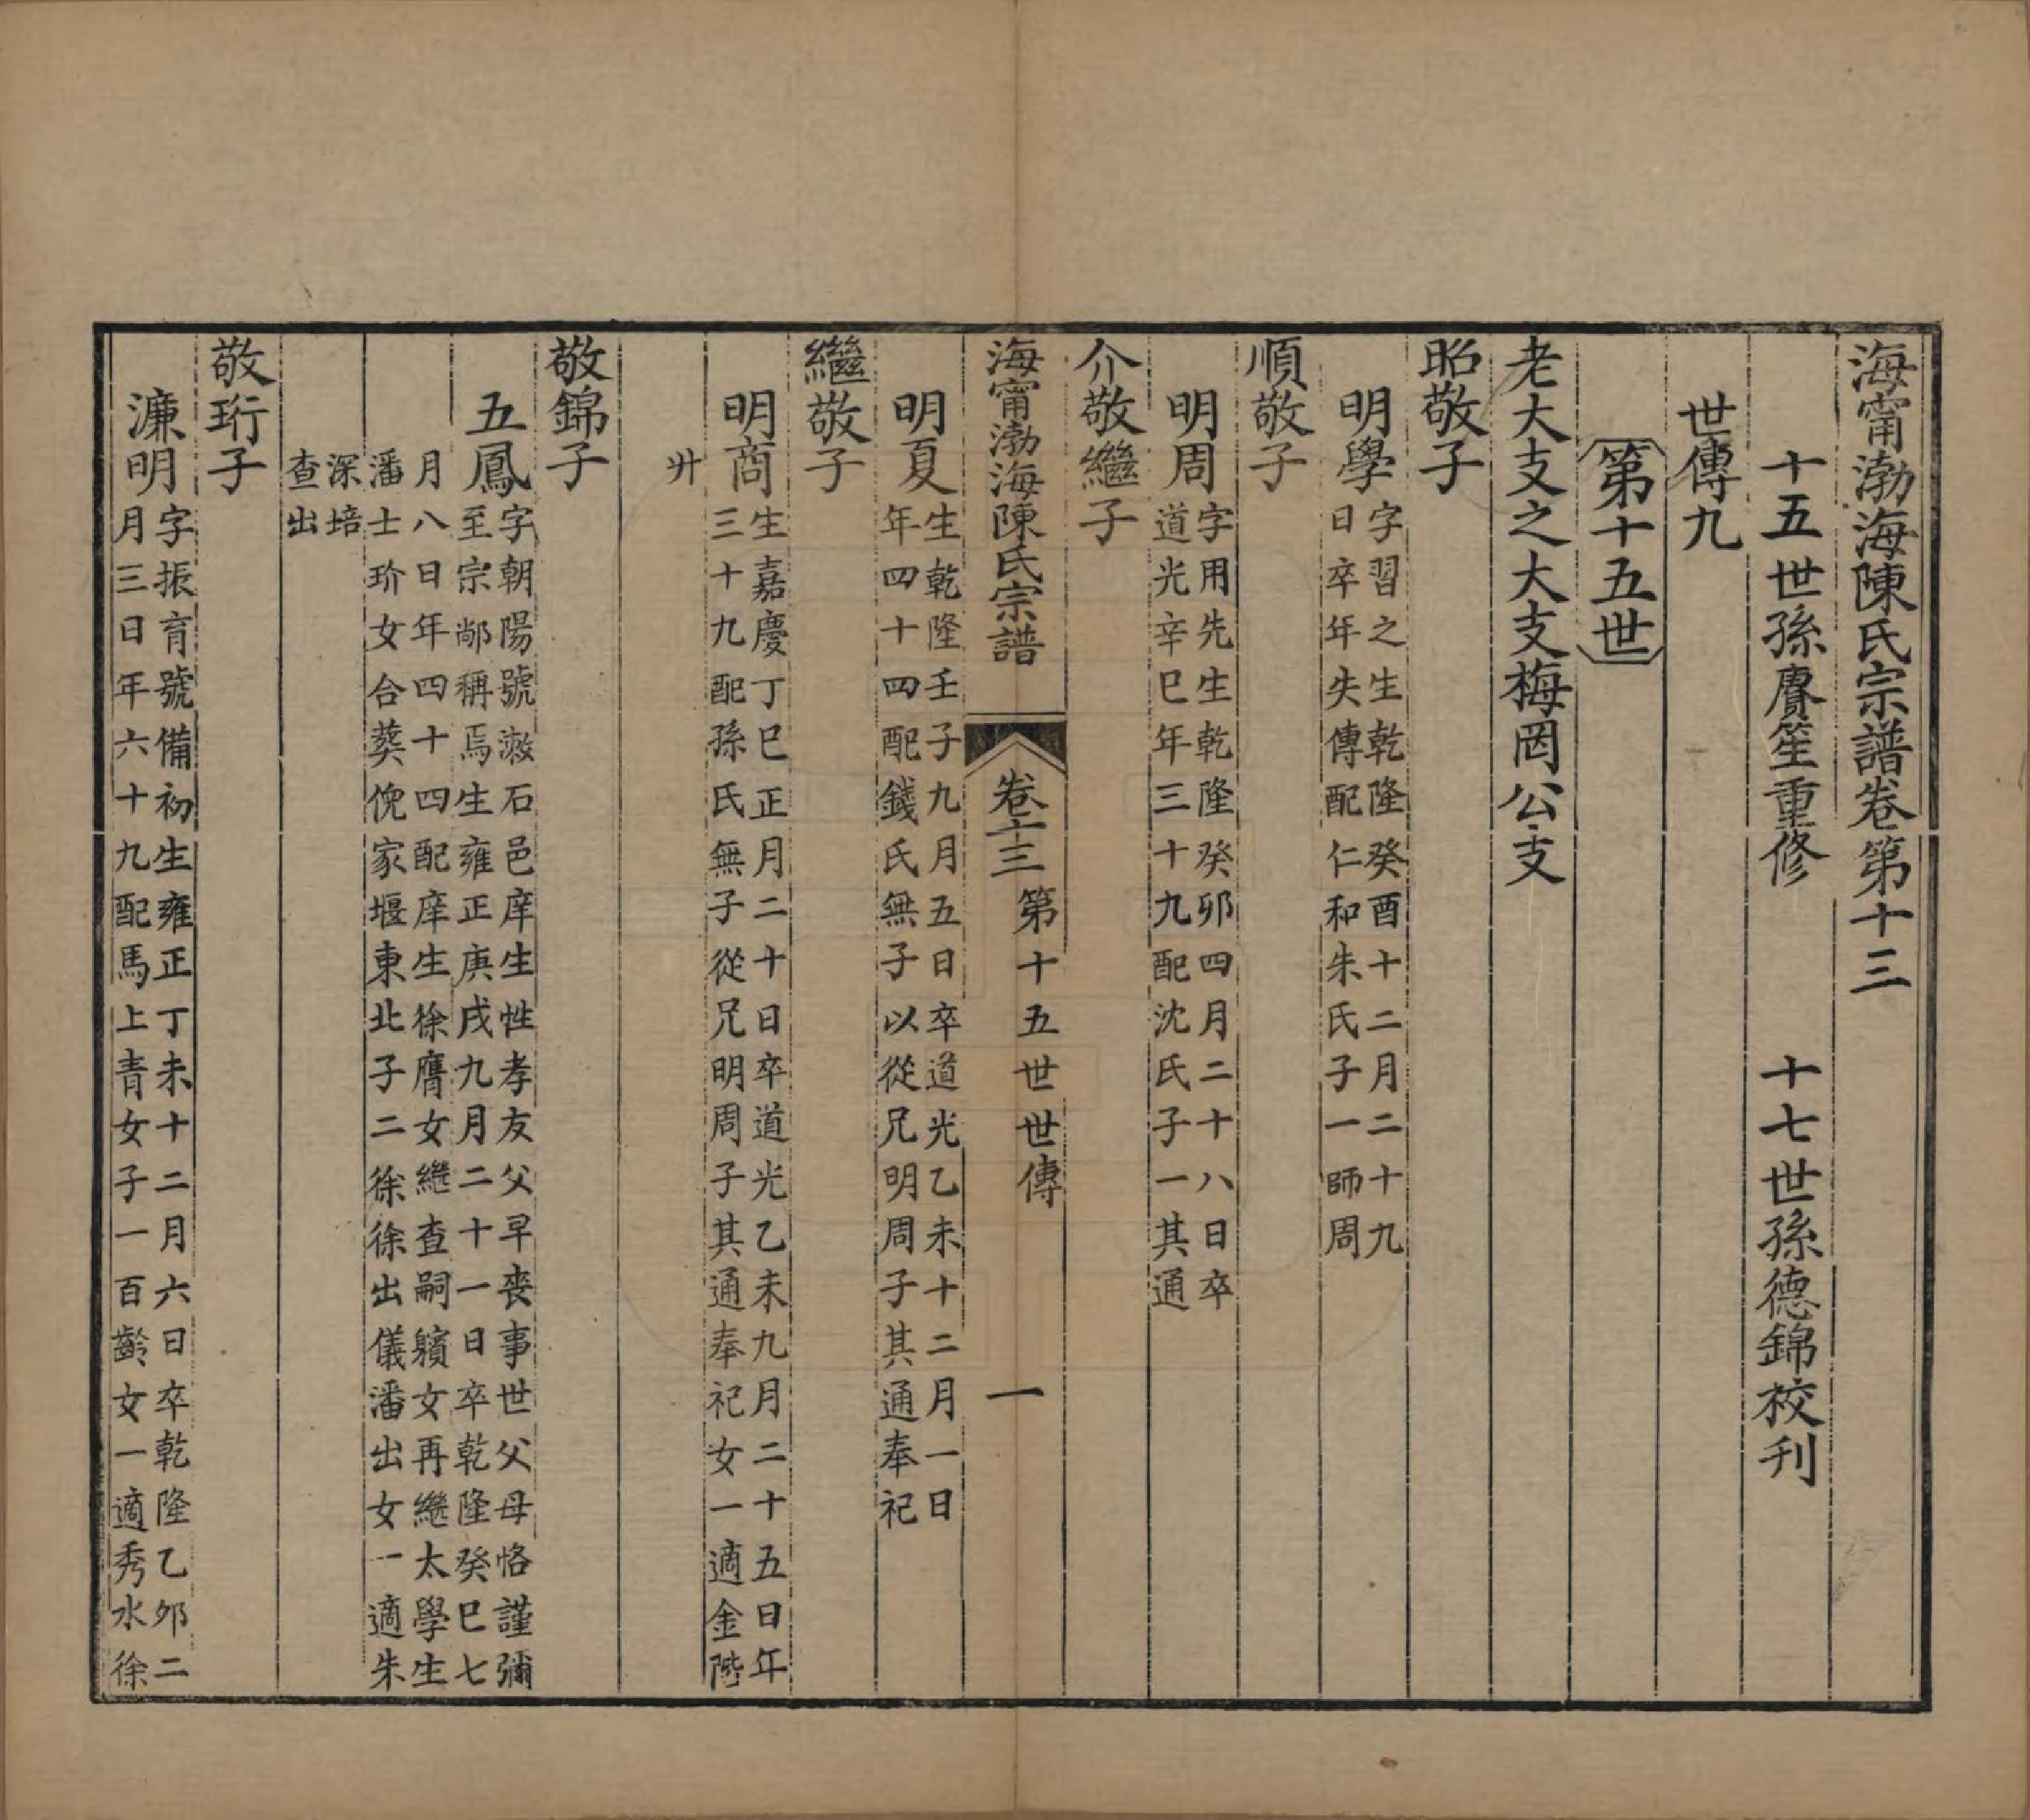 海甯渤海陳氏宗譜卷第十三
十五世孫賡笙重修　十七世孫德錦校刊
世傳九
第十五世
老大支之大支梅岡公支
昭敬子
明學
字習之生乾隆癸酉十二月二十九
日卒年失傳配仁和朱氏子一師周
順敬子
明周
字用先生乾隆癸卯四月二十八日卒
道光辛巳年三十九配沈氏子一其通
介敬繼子
海甯渤海陳氏宗譜
卷十三　第十五世世傳
一
明夏
生乾隆壬子九月五日卒道光乙未十二月一日
年四十四配錢氏無子以從兄明周子其通奉祀
繼敬子
明商
生嘉慶丁巳正月二十日卒道光乙未九月二十五日年
三十九配孫氏無子從兄明周子其通奉祀女一適金階
升
敬錦子
五鳳
字朝陽號漱石邑庠生性孝友父早丧事世父母恪謹彌
至宗鄰稱焉生雍正庚戌九月二十一日卒乾隆癸巳七
月八日年四十四配庠生徐膺女繼查嗣𩪘女再繼太學生
潘士玠女合葬傥家堰東北子二徐徐出儀潘出女一適朱
深培
查出
敬珩子
濂明
字振育號備初生雍正丁未十二月六日卒乾隆乙卯二
月三日年六十九配馬上青女子一百齡女一適秀水徐